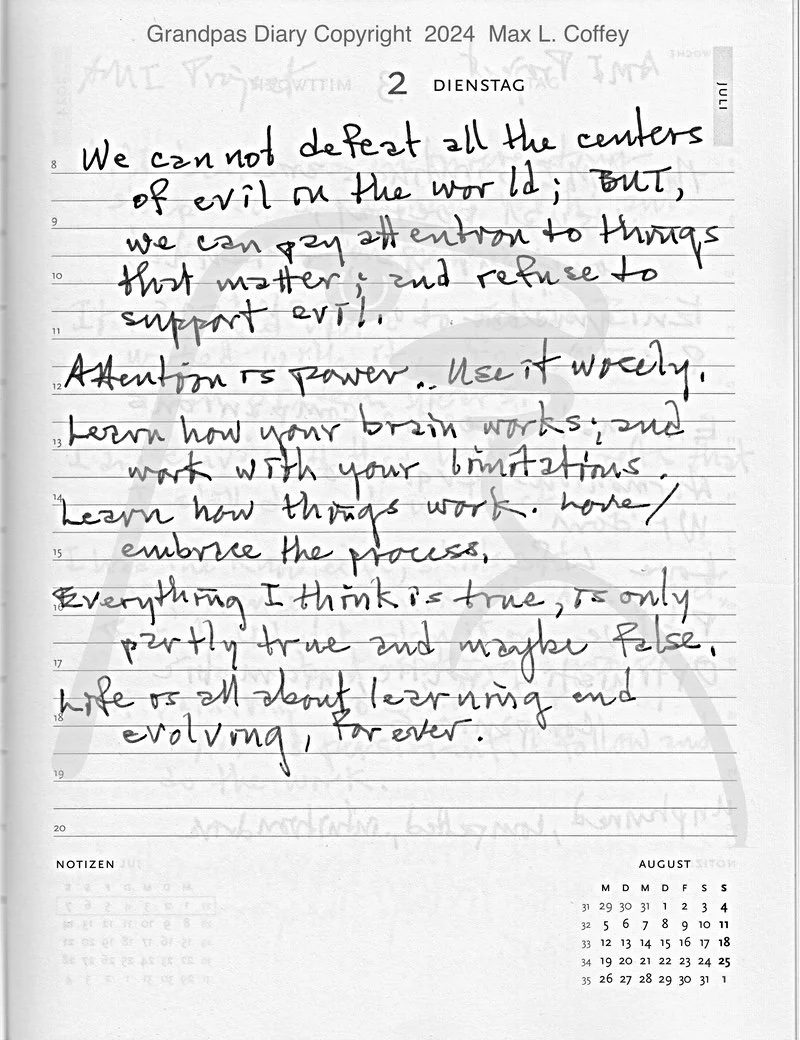 Grandpas Diary Copyright 2024 Max L. Coffey
2 DIENSTAG
JULI
8 We can not defeat all the centers
of evil in the world; BUT,
9 we can pay attention to things
10 that matter; and refuse to
11 support evil.
12 Attention is power.. Use it wisely.
13 Learn how your brain works; and
work with your limitations.
14 Learn how things work. Love/
15 embrace the process.
16 Everything I think is true, is only
17 partly true and maybe false.
18 Life is all about learning and
evolving, forever.
19
20
NOTIZEN
AUGUST
M D M D F S S
31 29 30 31 1 2 3 4
32 5 6 7 8 9 10 11
33 12 13 14 15 16 17 18
34 19 20 21 22 23 24 25
35 26 27 28 29 30 31 1